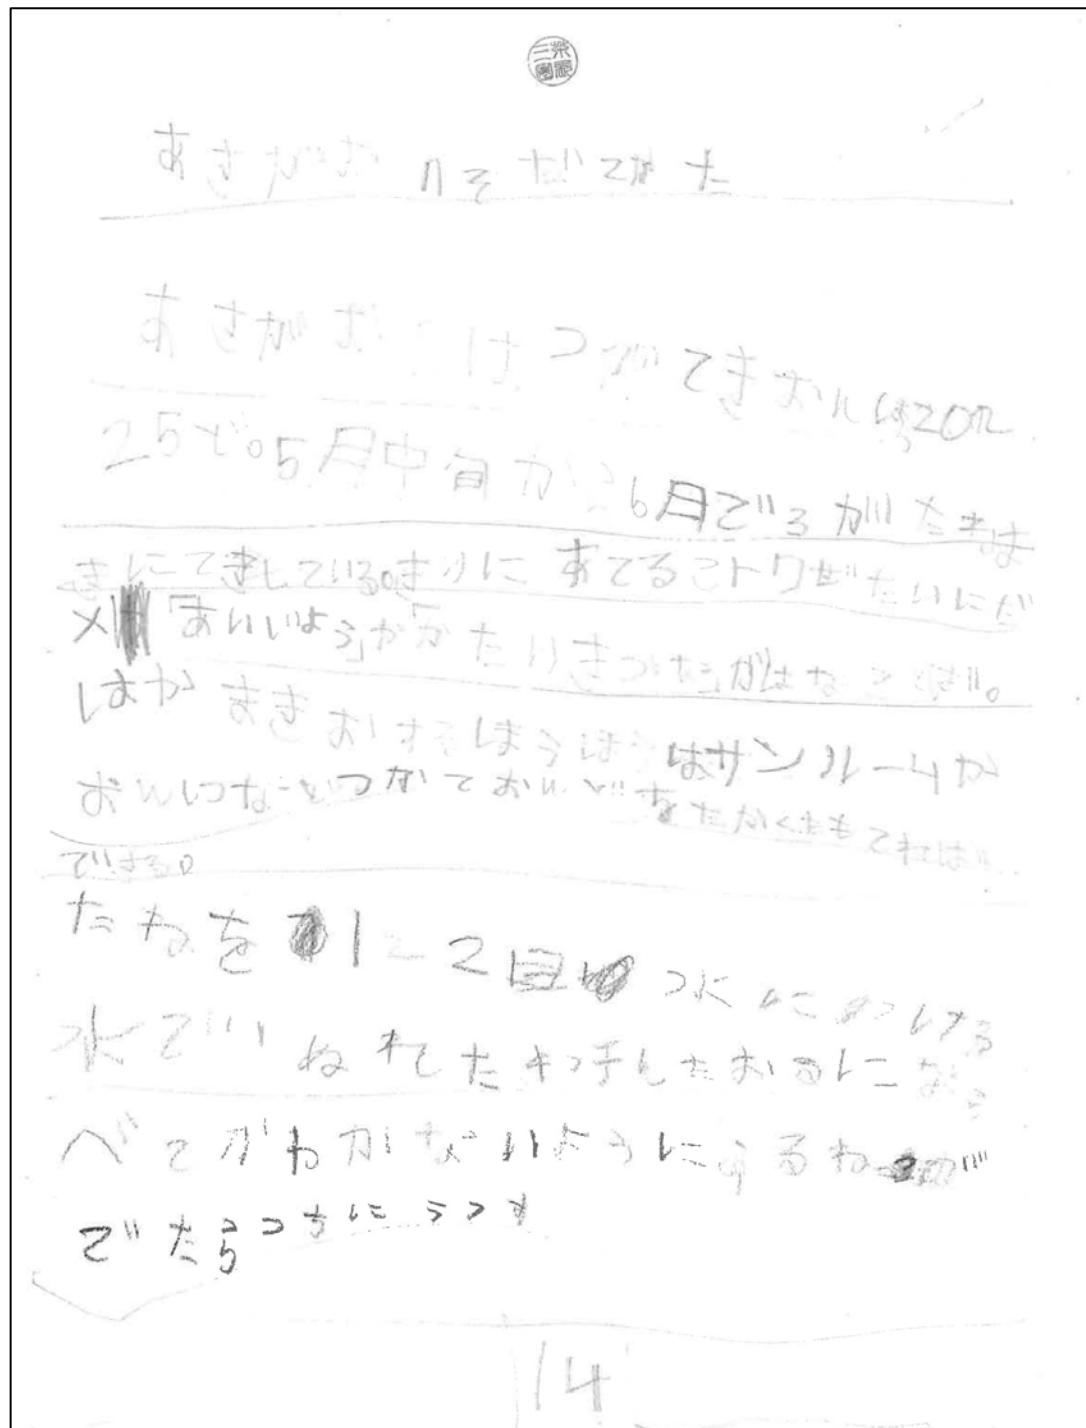 あさがおのそだてかた
あさがおはつがてきおんは20℃
25ど。5月中旬から6月ごろがたねは
きにてきしている。さいにすてるコトワぜたいにだ
メ「あいいよう」か「かたいきつな」がはなことば。
はかまきおするほうほうはサンルームか
おんしつなどつかておんどをたかくたもてれば
できる。
たねを1~2日水につける
水でぬれたキッチんたおるになら
べてかわかないようにするねが
でたらつちにうつす
14